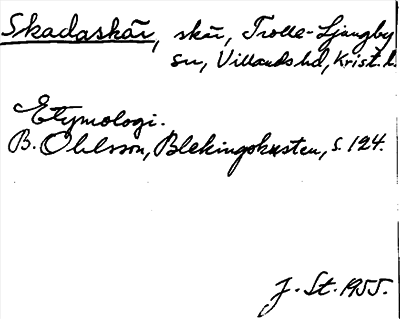 Skadaskär, skär, Trolle-Ljungby
sn, Villands hd, Krist. l.
Etymologi.
B. Ohlsson, Blekingskusten, s. 124.
J. St. 1955.